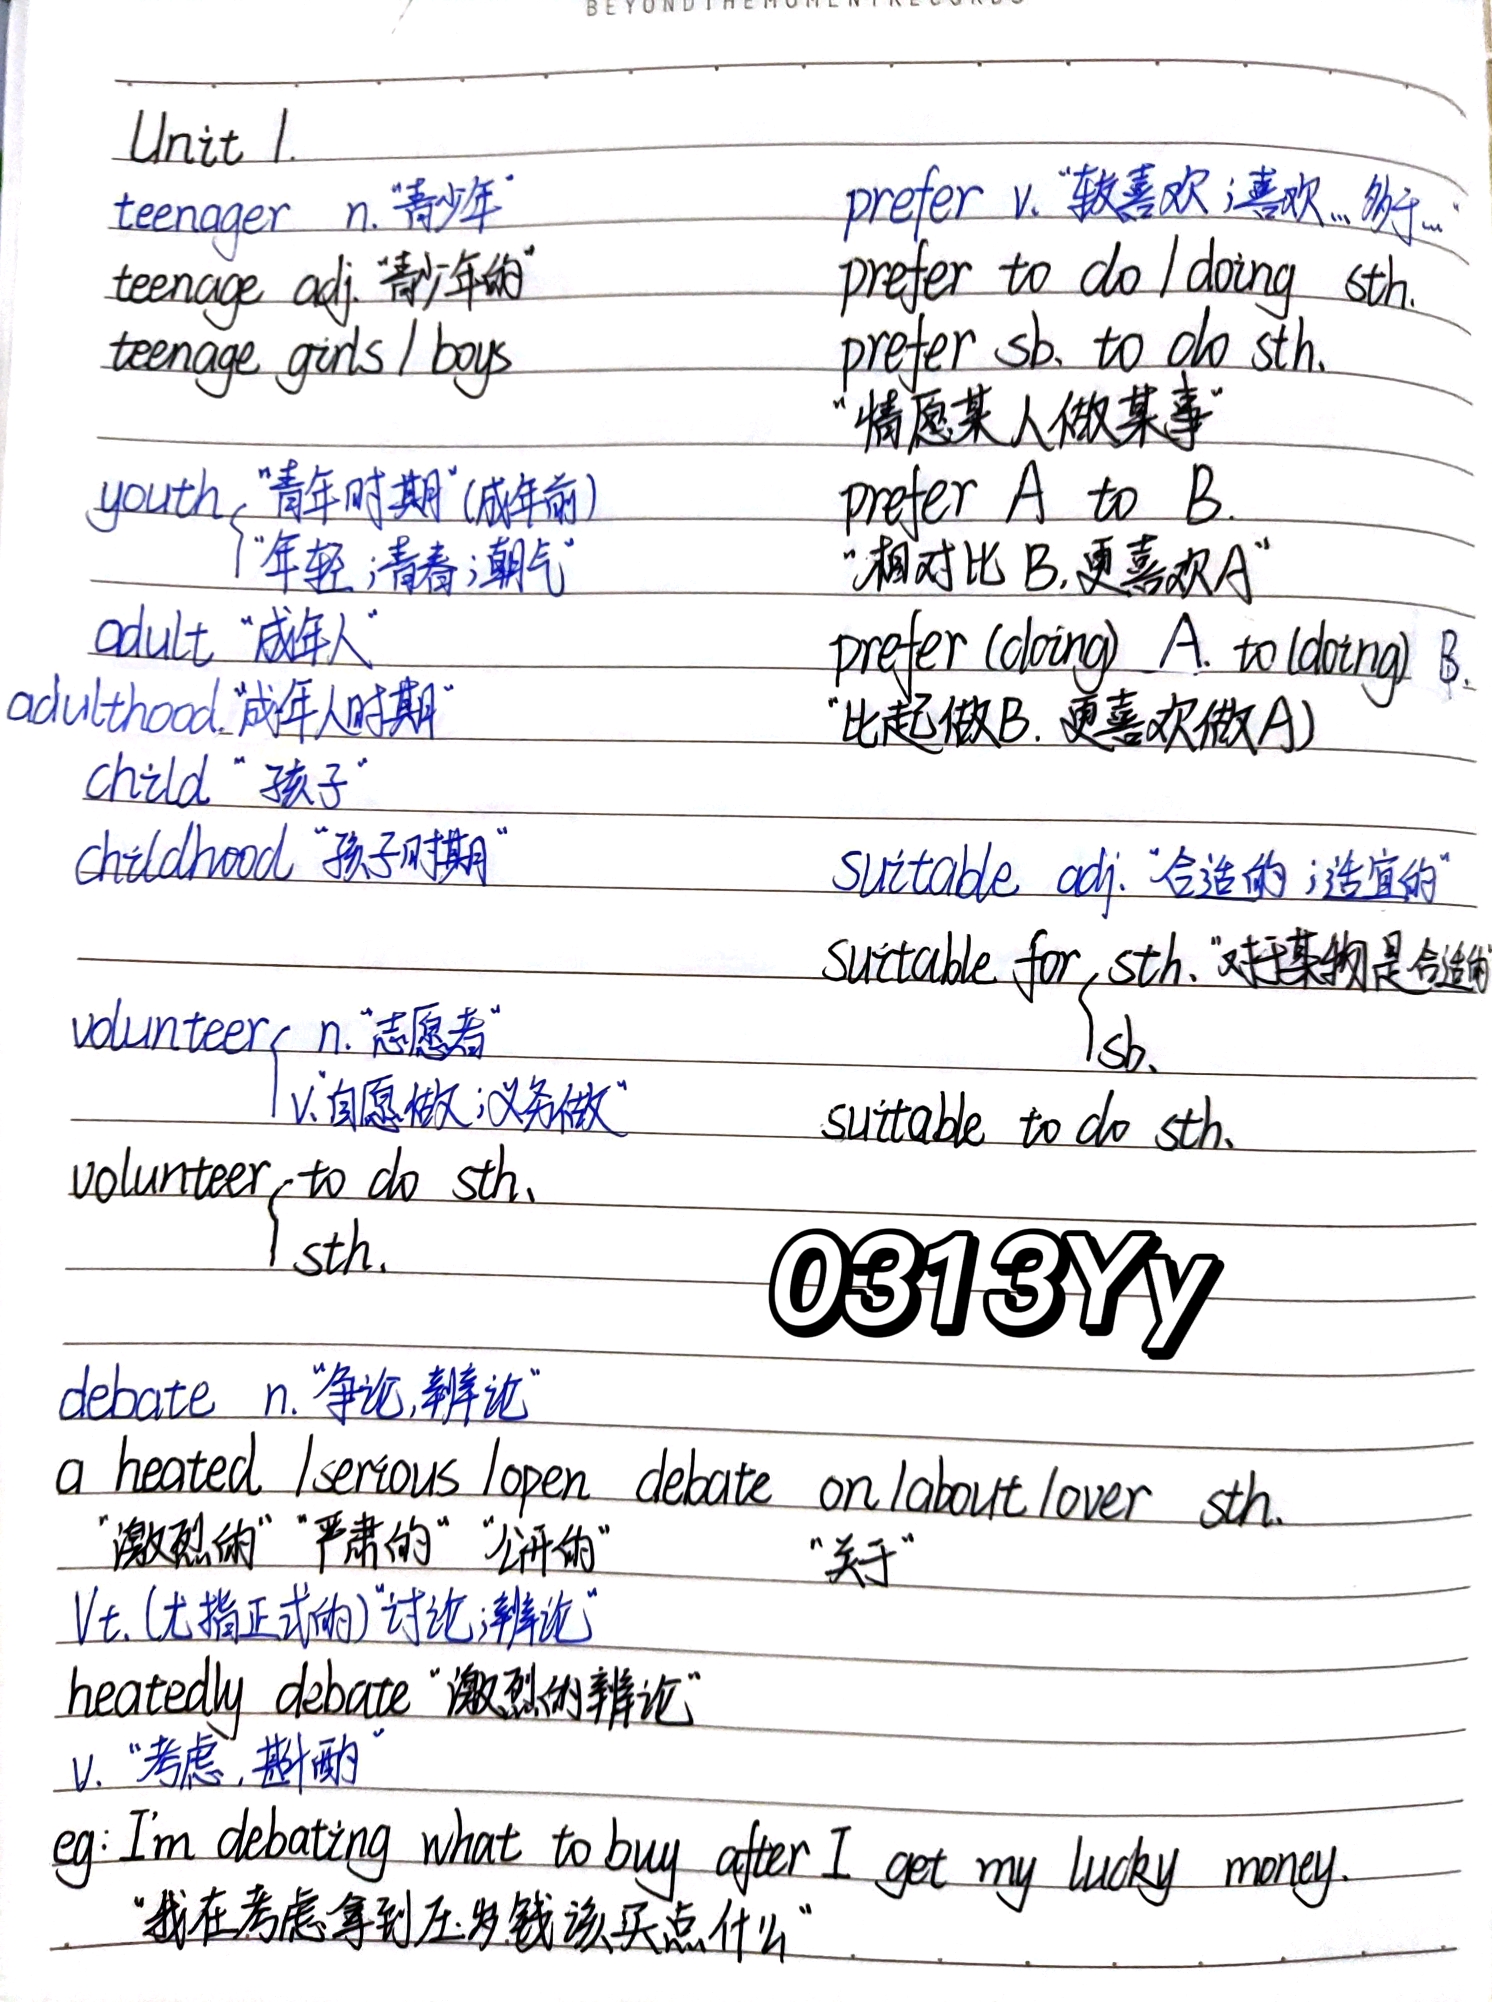 BEYONDTHEMOMENTRECORDS
Unit 1.
teenager n. "青少年"
teenage adj. "青少年的"
teenage girls / boys
youth "青年时期"(成年前)
"年轻;青春;朝气"
adult "成年人"
adulthood. "成年人时期"
child "孩子"
childhood "孩子时期"
volunteer n. "志愿者"
v. "自愿做;义务做"
volunteer to do sth.
sth.
prefer v. "较喜欢;喜欢...多于..."
prefer to do / doing sth.
prefer sb. to do sth.
"情愿某人做某事"
prefer A to B.
"相对比B,更喜欢A"
prefer (doing) A. to (doing) B.
"比起做B. 更喜欢做A)
suitable adj. "合适的;适宜的"
suitable for sth. "对于某物是合适的
sb.
suitable to do sth.
0313Yy
debate n. "争论,辩论"
a heated /serious /open debate on/about/over sth.
"激烈的" "严肃的" "公开的" "关于"
Vt. (尤指正式的)"讨论;辩论"
heatedly debate "激烈的辩论"
v. "考虑,斟酌"
eg: I'm debating what to buy after I get my lucky money.
"我在考虑拿到压岁钱该买点什么"